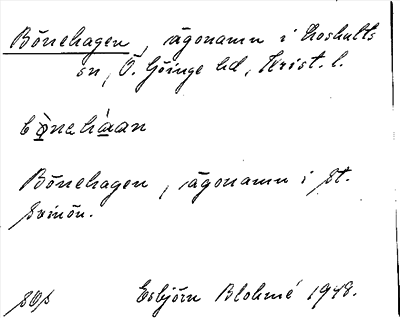 Bönehagen, ägonamn i Loshults
sn, Ö. Göinge hd, Krist. l.
bø̀neháan
Bönehagen, ägonamn i St.
Svinön.
Esbjörn Blohmé 1948.